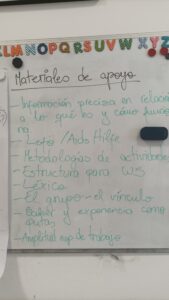 LMNOPQRSUVWXYZ
Materiales de apoyo
- Información precisa en relación
a lo que hay y cómo funcio
na
- Leto / Aids Hilfe
- Metodologías de actividades
- Estructura para WS
- Léxico
- El grupo - el vínculo
y experiencia como
- Amplitud exp. de trabajo